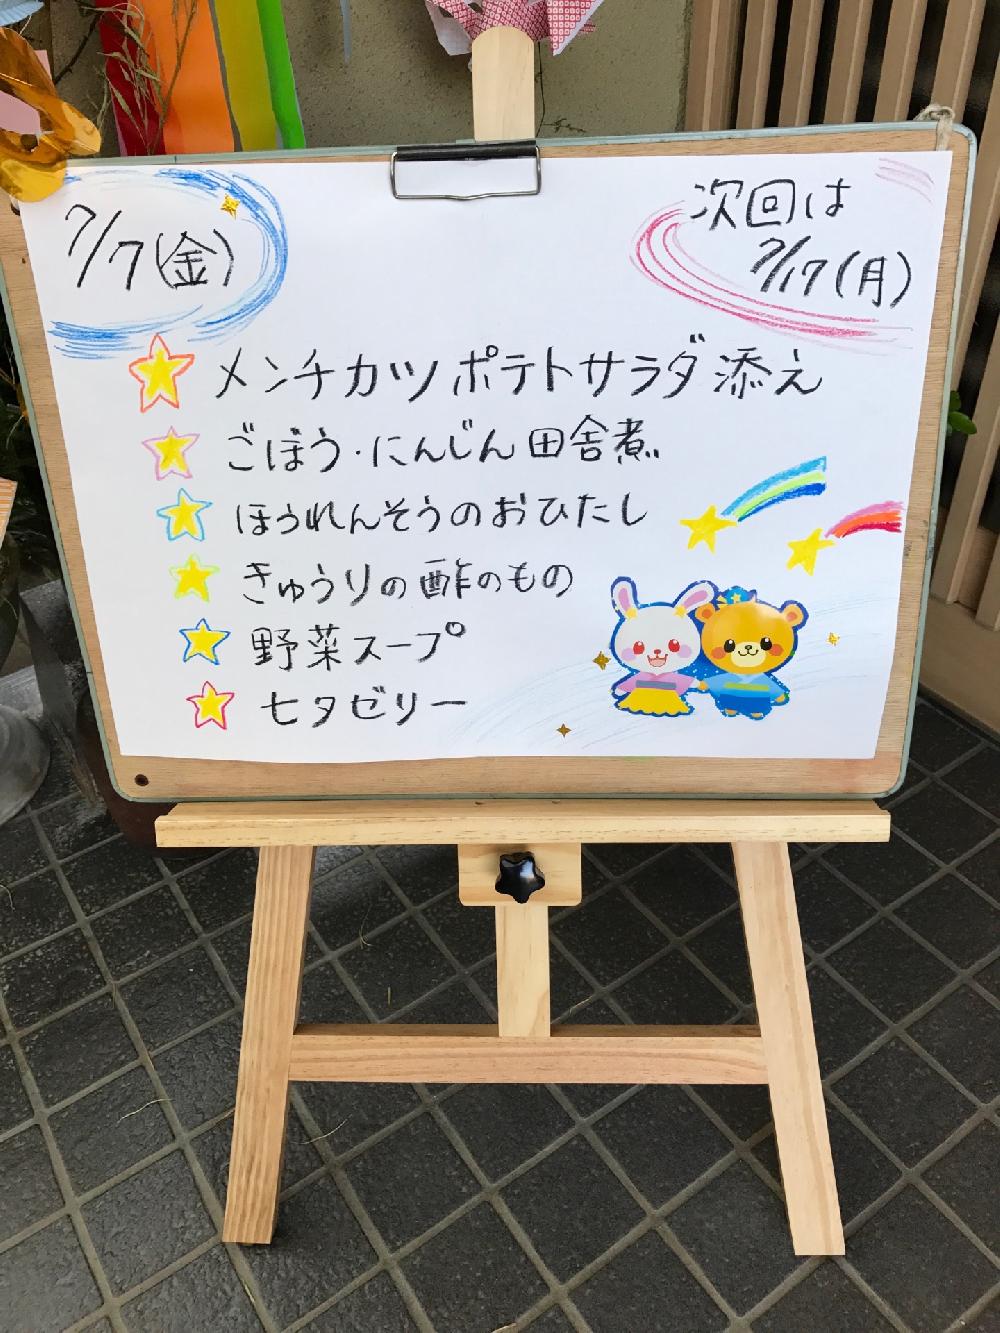 7/7(金)
次回は
7/17(月)
メンチカツポテトサラダ添え
ごぼう・にんじん田舎煮
ほうれんそうのおひたし
きゅうりの酢のもの
野菜スープ
七夕ゼリー